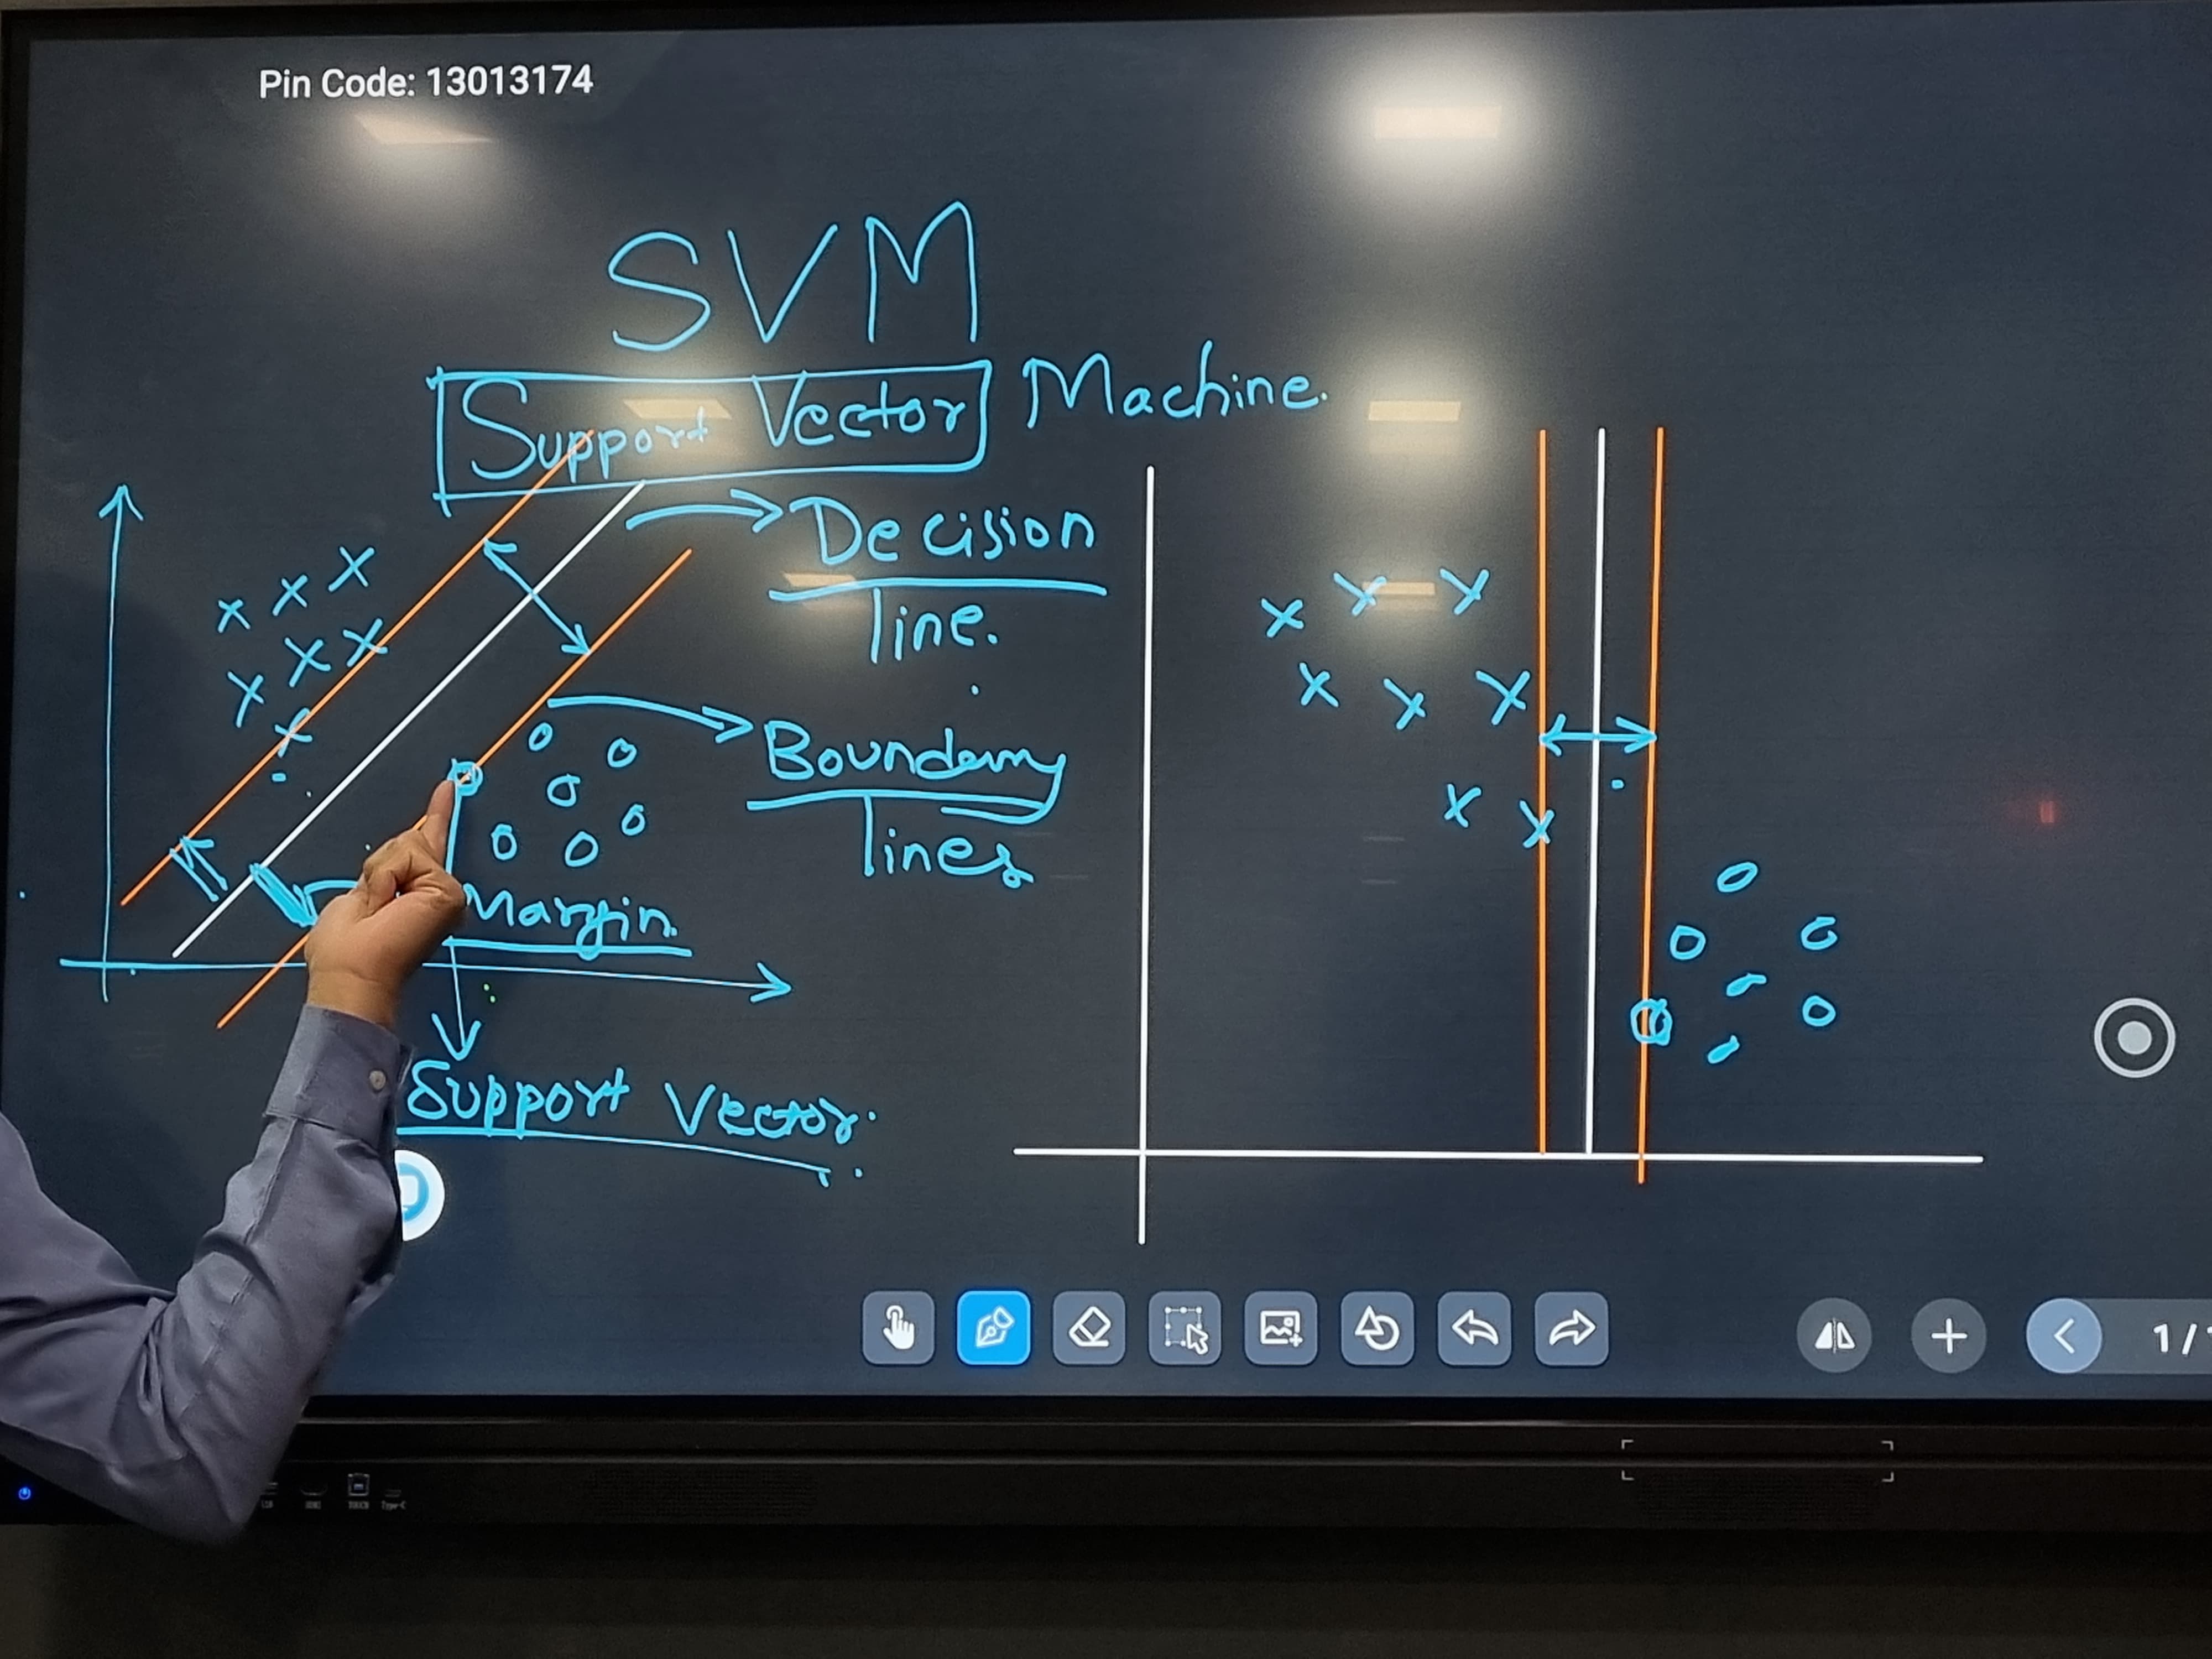 Pin Code: 13013174
SVM
Support Vector Machine.
Decision
line.
Boundary
lines
Margin.
Support Vector.
1/